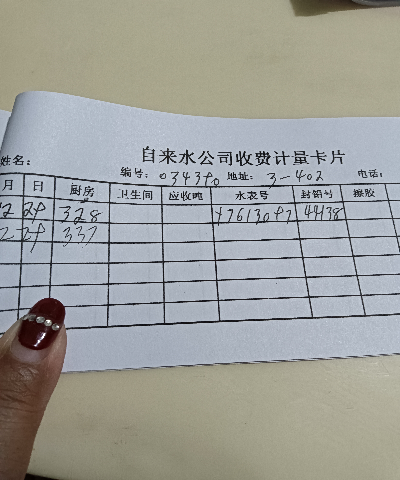 自来水公司收费计量卡片
姓名： 编号：034390 地址：3-402 电话：
月 日 厨房 卫生间 应收吨 水表号 封铅号 橡胶
29 328 44138
29 337